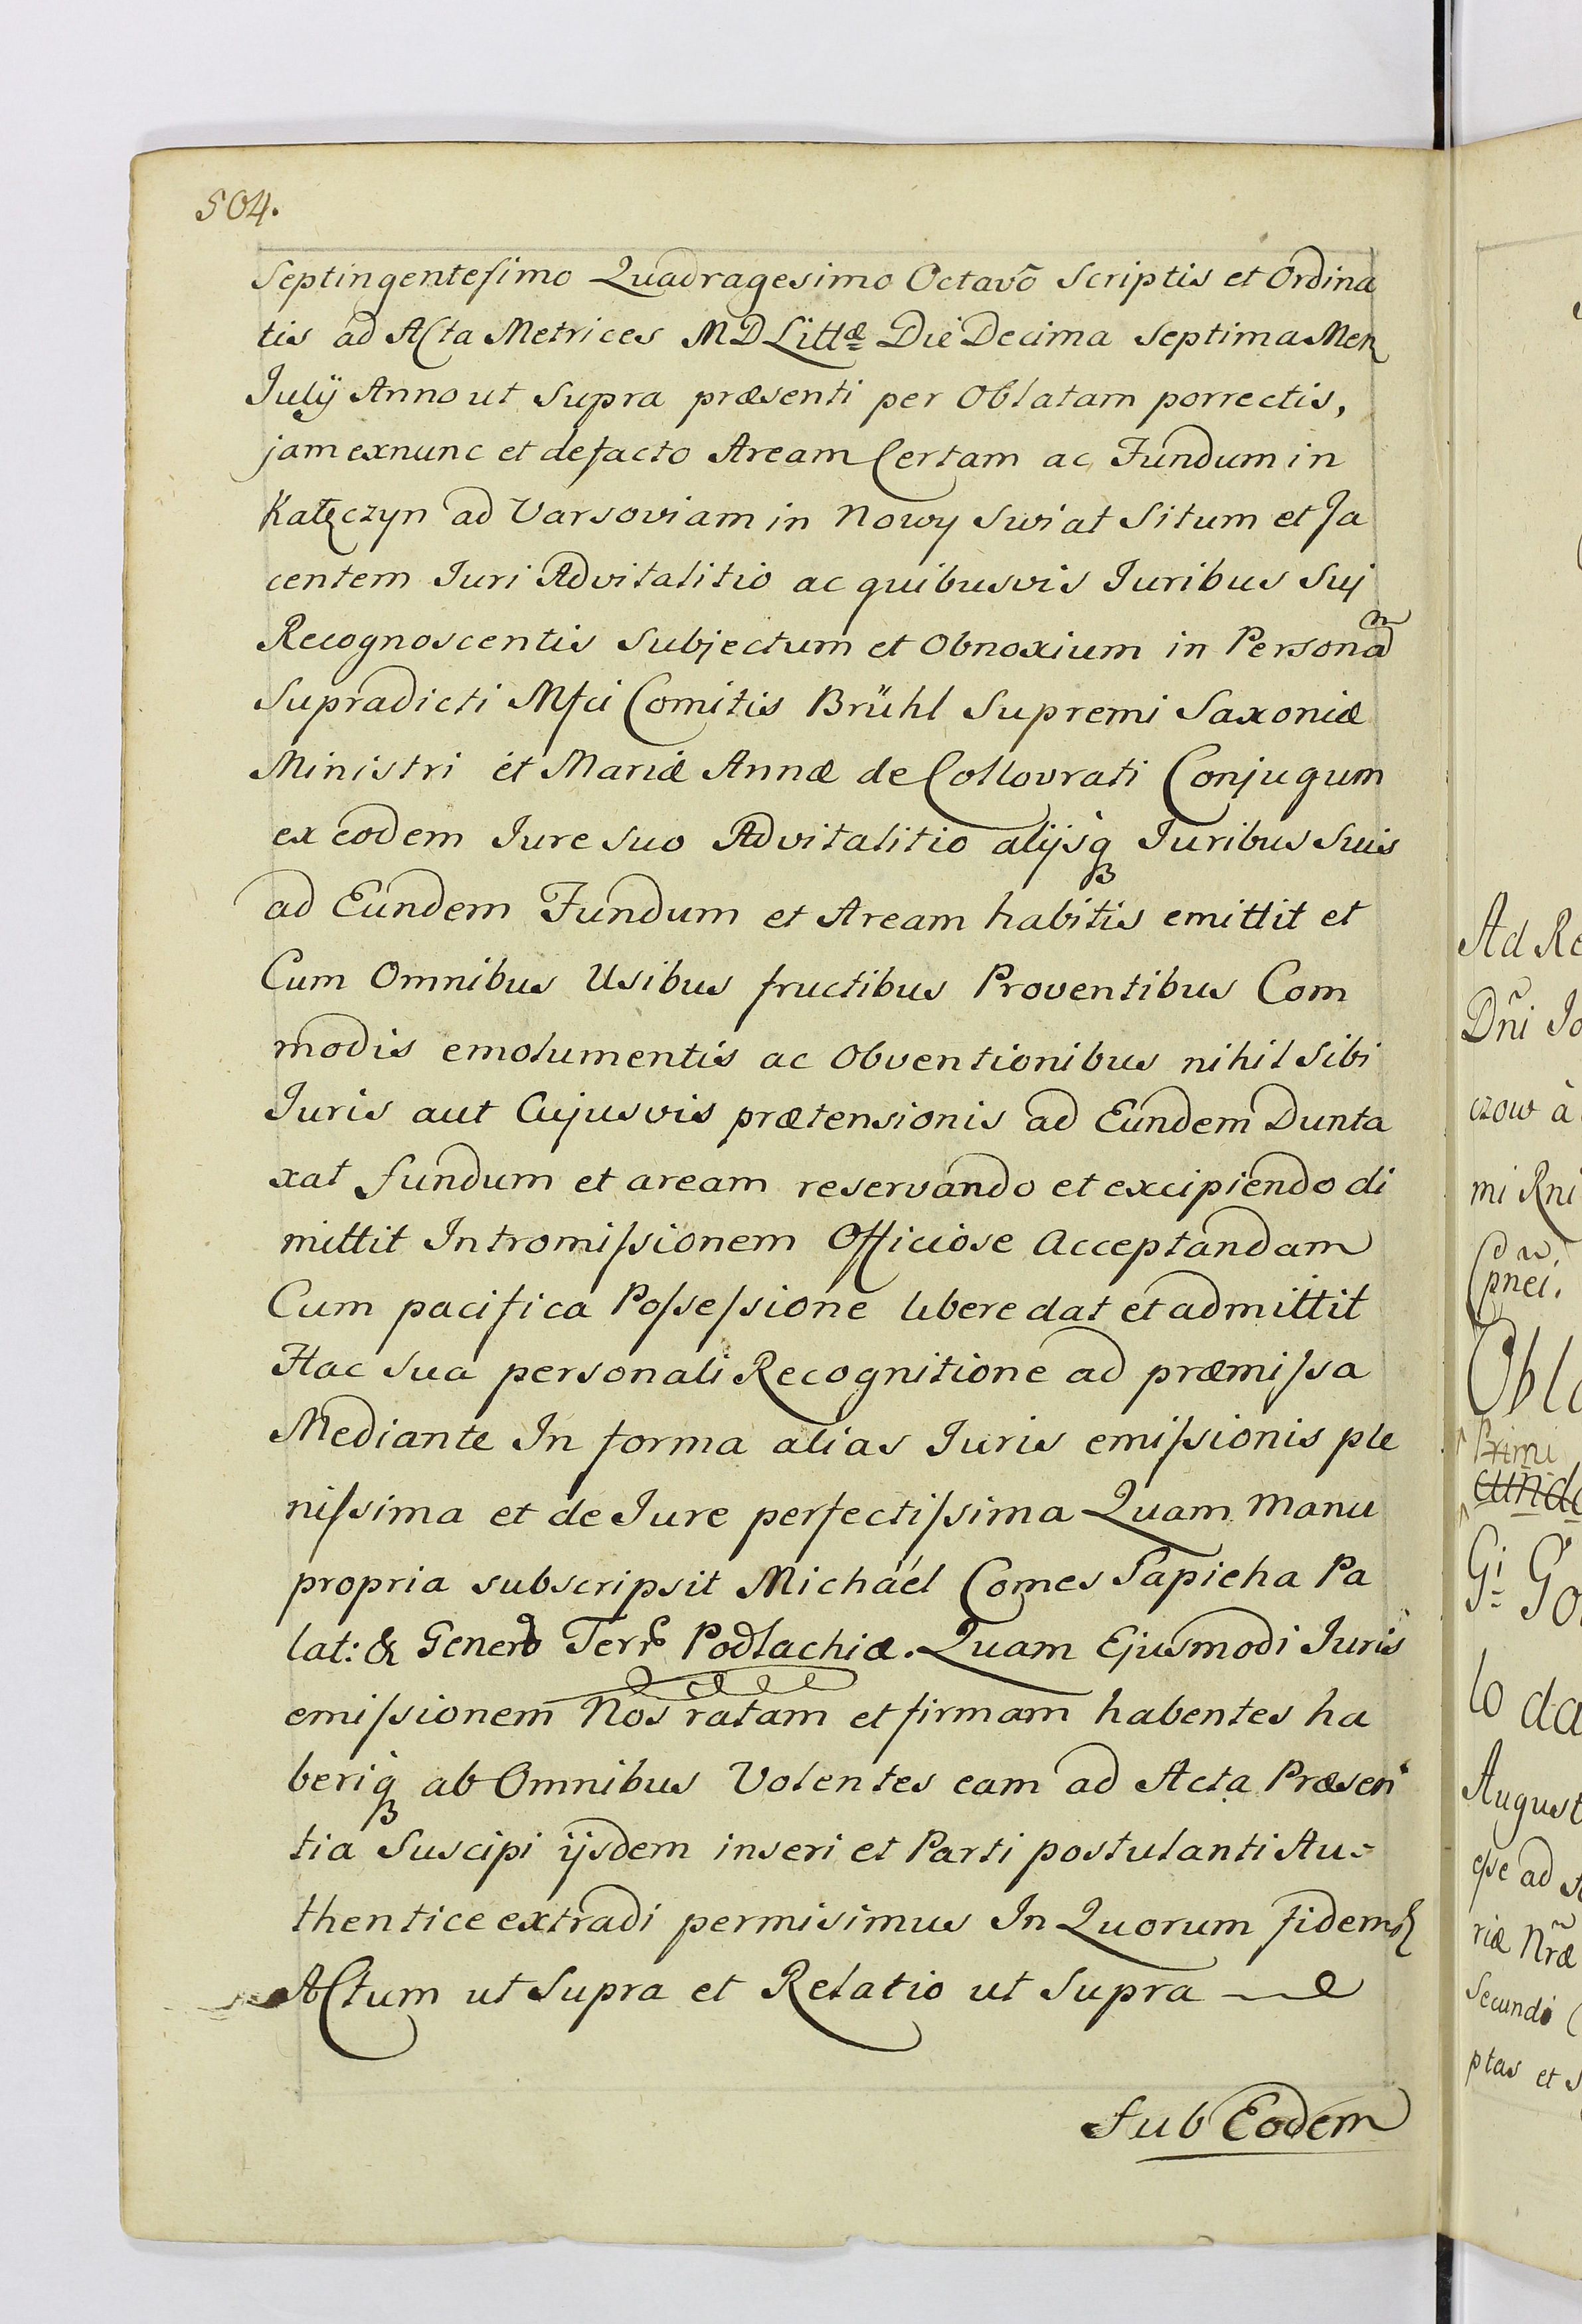 504.
Septingentesimo Quadragesimo Octavo Scriptis et Ordina
tis ad Acta Metrices MD Littæ Die Decima Septima Men
Julÿ Anno ut Supra præsenti per Oblatam porrectis,
jam exnunc et defacto Aream Certam ac Fundum in
Kałęczyn ad Varsoviam in Nowy Swiat Situm et Ja
centem Juri Advitalitio ac quibusvis Juribus Suj
Recognoscentis Subjectum et Obnoxium in Personam
Supradicti Mfci Comitis Brühl Supremi Saxoniæ
Ministri et Mariæ Annæ de Collovrati Conjugum
ex eodem Jure Suo Advitalitio alijsq Juribus Suis
ad Eundem Fundum et Aream habitis emittit et
Cum Omnibus Usibus fructibus Proventibus Com
modis emolumentis ac Obventionibus nihil Sibi
Juris aut Cujusvis prætensionis ad Eundem Dunta
xat fundum et aream reservando et excipiendo di
mittit Intromissionem Officiose Acceptandam
Cum pacifica Possessione libere dat et admittit
Hac Sua personali Recognitione ad præmissa
Mediante In forma alias Juris emissionis ple
nissima et de Jure perfectissima Quam Manu
propria subscripsit Michaél Comes Sapieha Pa
lat: & Gener Terr Podlachiæ. Quam Ejusmodi Juris
emissionem Nos ratam et firmam habentes ha
beriq ab Omnibus Volentes eam ad Acta Præsen
tia Suscipi ijsdem inseri et Parti postulanti Au-
thentice extradi permisimus In Quorum fidem
Actum ut Supra et Relatio ut Supra
Sub Eodem
Ad Re
Dñi Jo
czow à
mi Rni
pnei.
Obla
Primi
Gi Go
lo da
August
esse ad
riæ Nræ
Secundi
ptas et S